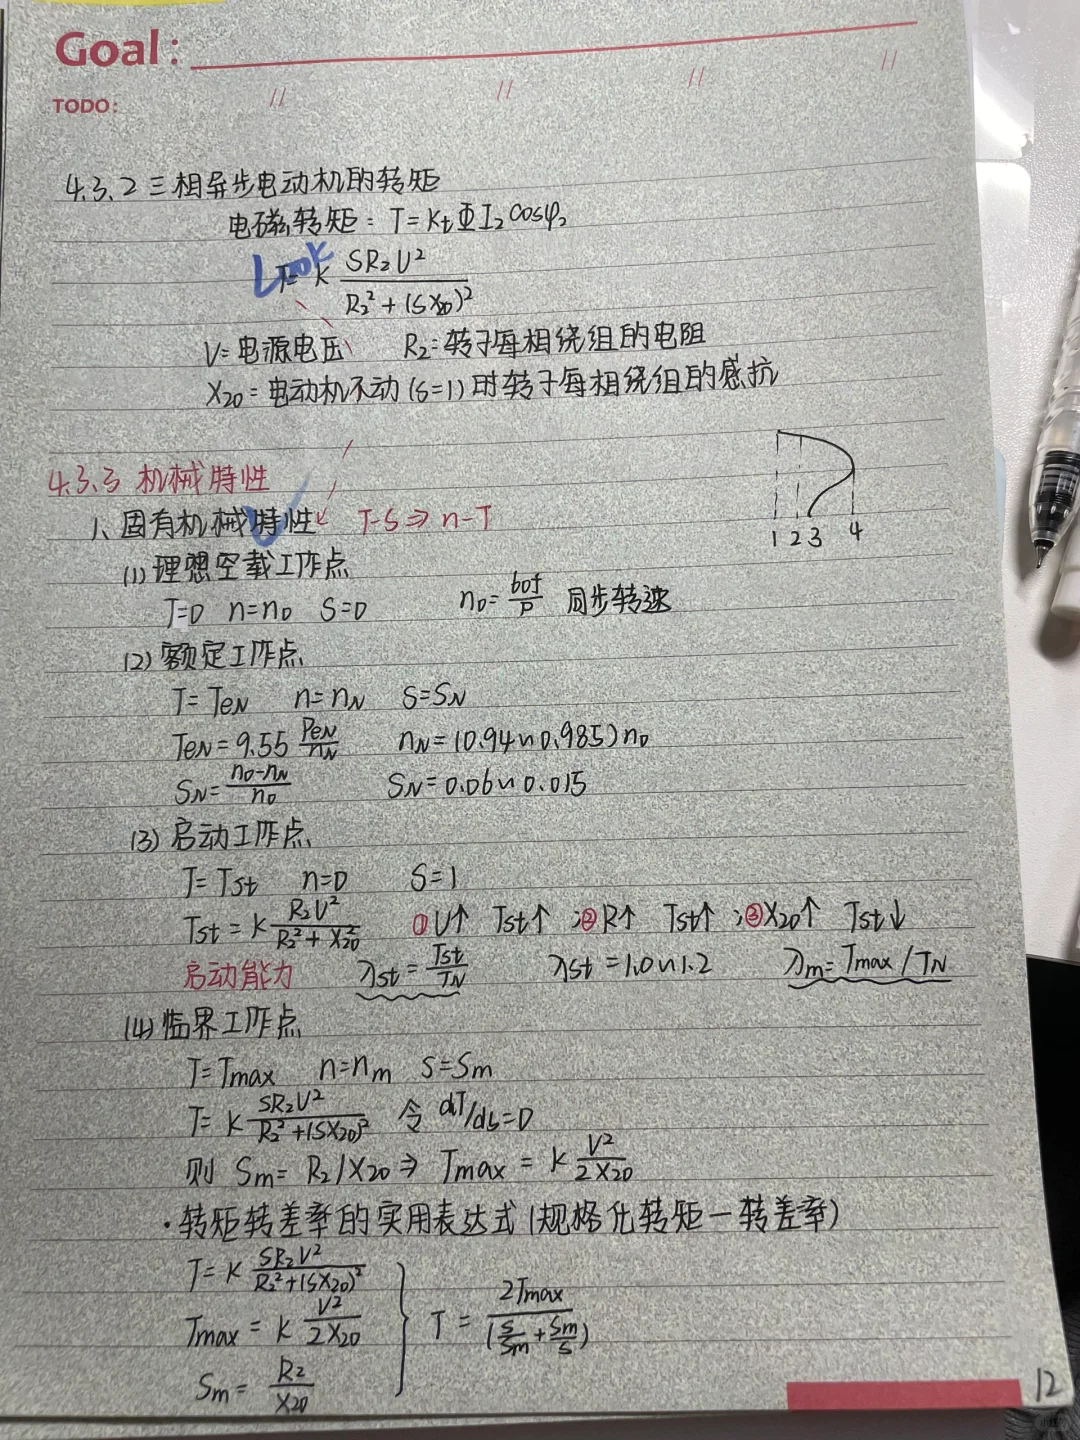 Goal:
TODO:
4.3.2 三相异步电动机的转矩
电磁转矩: T=KtΦI₂cosφ₂
Look
T= K SR₂U² / R₂²+(SX₂₀)²
U=电源电压 R₂=转子每相绕组的电阻
X₂₀=电动机不动(S=1)时转子每相绕组的感抗
4.3.3 机械特性
1、固有机械特性 T-S⇒n-T
1 2 3 4
(1)理想空载工作点
T=0 n=n₀ S=0 n₀=60f/P 同步转速
(2)额定工作点
T=TeN n=nN S=SN
TeN=9.55 PeN/nN nN=(0.94~0.985)n₀
SN=n₀-nN/n₀ SN=0.06~0.015
(3)启动工作点
T=Tst n=0 S=1
Tst=K R₂U²/R₂²+X₂₀² ①U↑ Tst↑;②R↑ Tst↑;③X₂₀↑ Tst↓
启动能力 λst=Tst/TN λst=1.0~1.2 λm=Tmax/TN
(4)临界工作点
T=Tmax n=nm S=Sm
T=K SR₂U²/R₂²+(SX₂₀)² 令 dT/ds=0
则 Sm=R₂/X₂₀⇒Tmax=K U²/2X₂₀
·转矩转差率的实用表达式(规格化转矩-转差率)
T=K SR₂U²/R₂²+(SX₂₀)²
Tmax=K U²/2X₂₀ } T=2Tmax/(S/Sm+Sm/S)
Sm=R₂/X₂₀
12